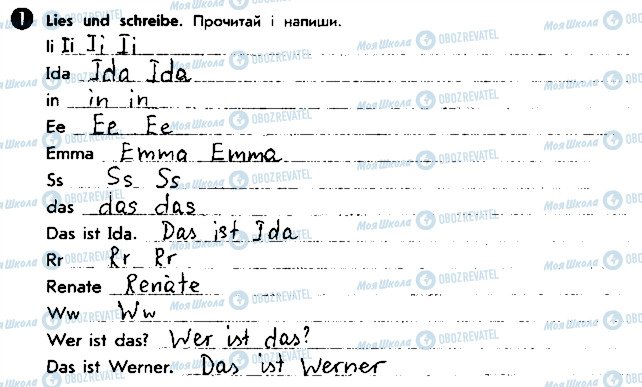 1 Lies und schreibe. Прочитай і напиши.
Ii Ii Ii Ii
Ida Ida Ida
in in in
Ee Ee Ee
Emma Emma Emma
Ss Ss Ss
das das das
Das ist Ida. Das ist Ida
Rr Rr Rr
Renate Renate
Ww Ww
Wer ist das? Wer ist das?
Das ist Werner. Das ist Werner